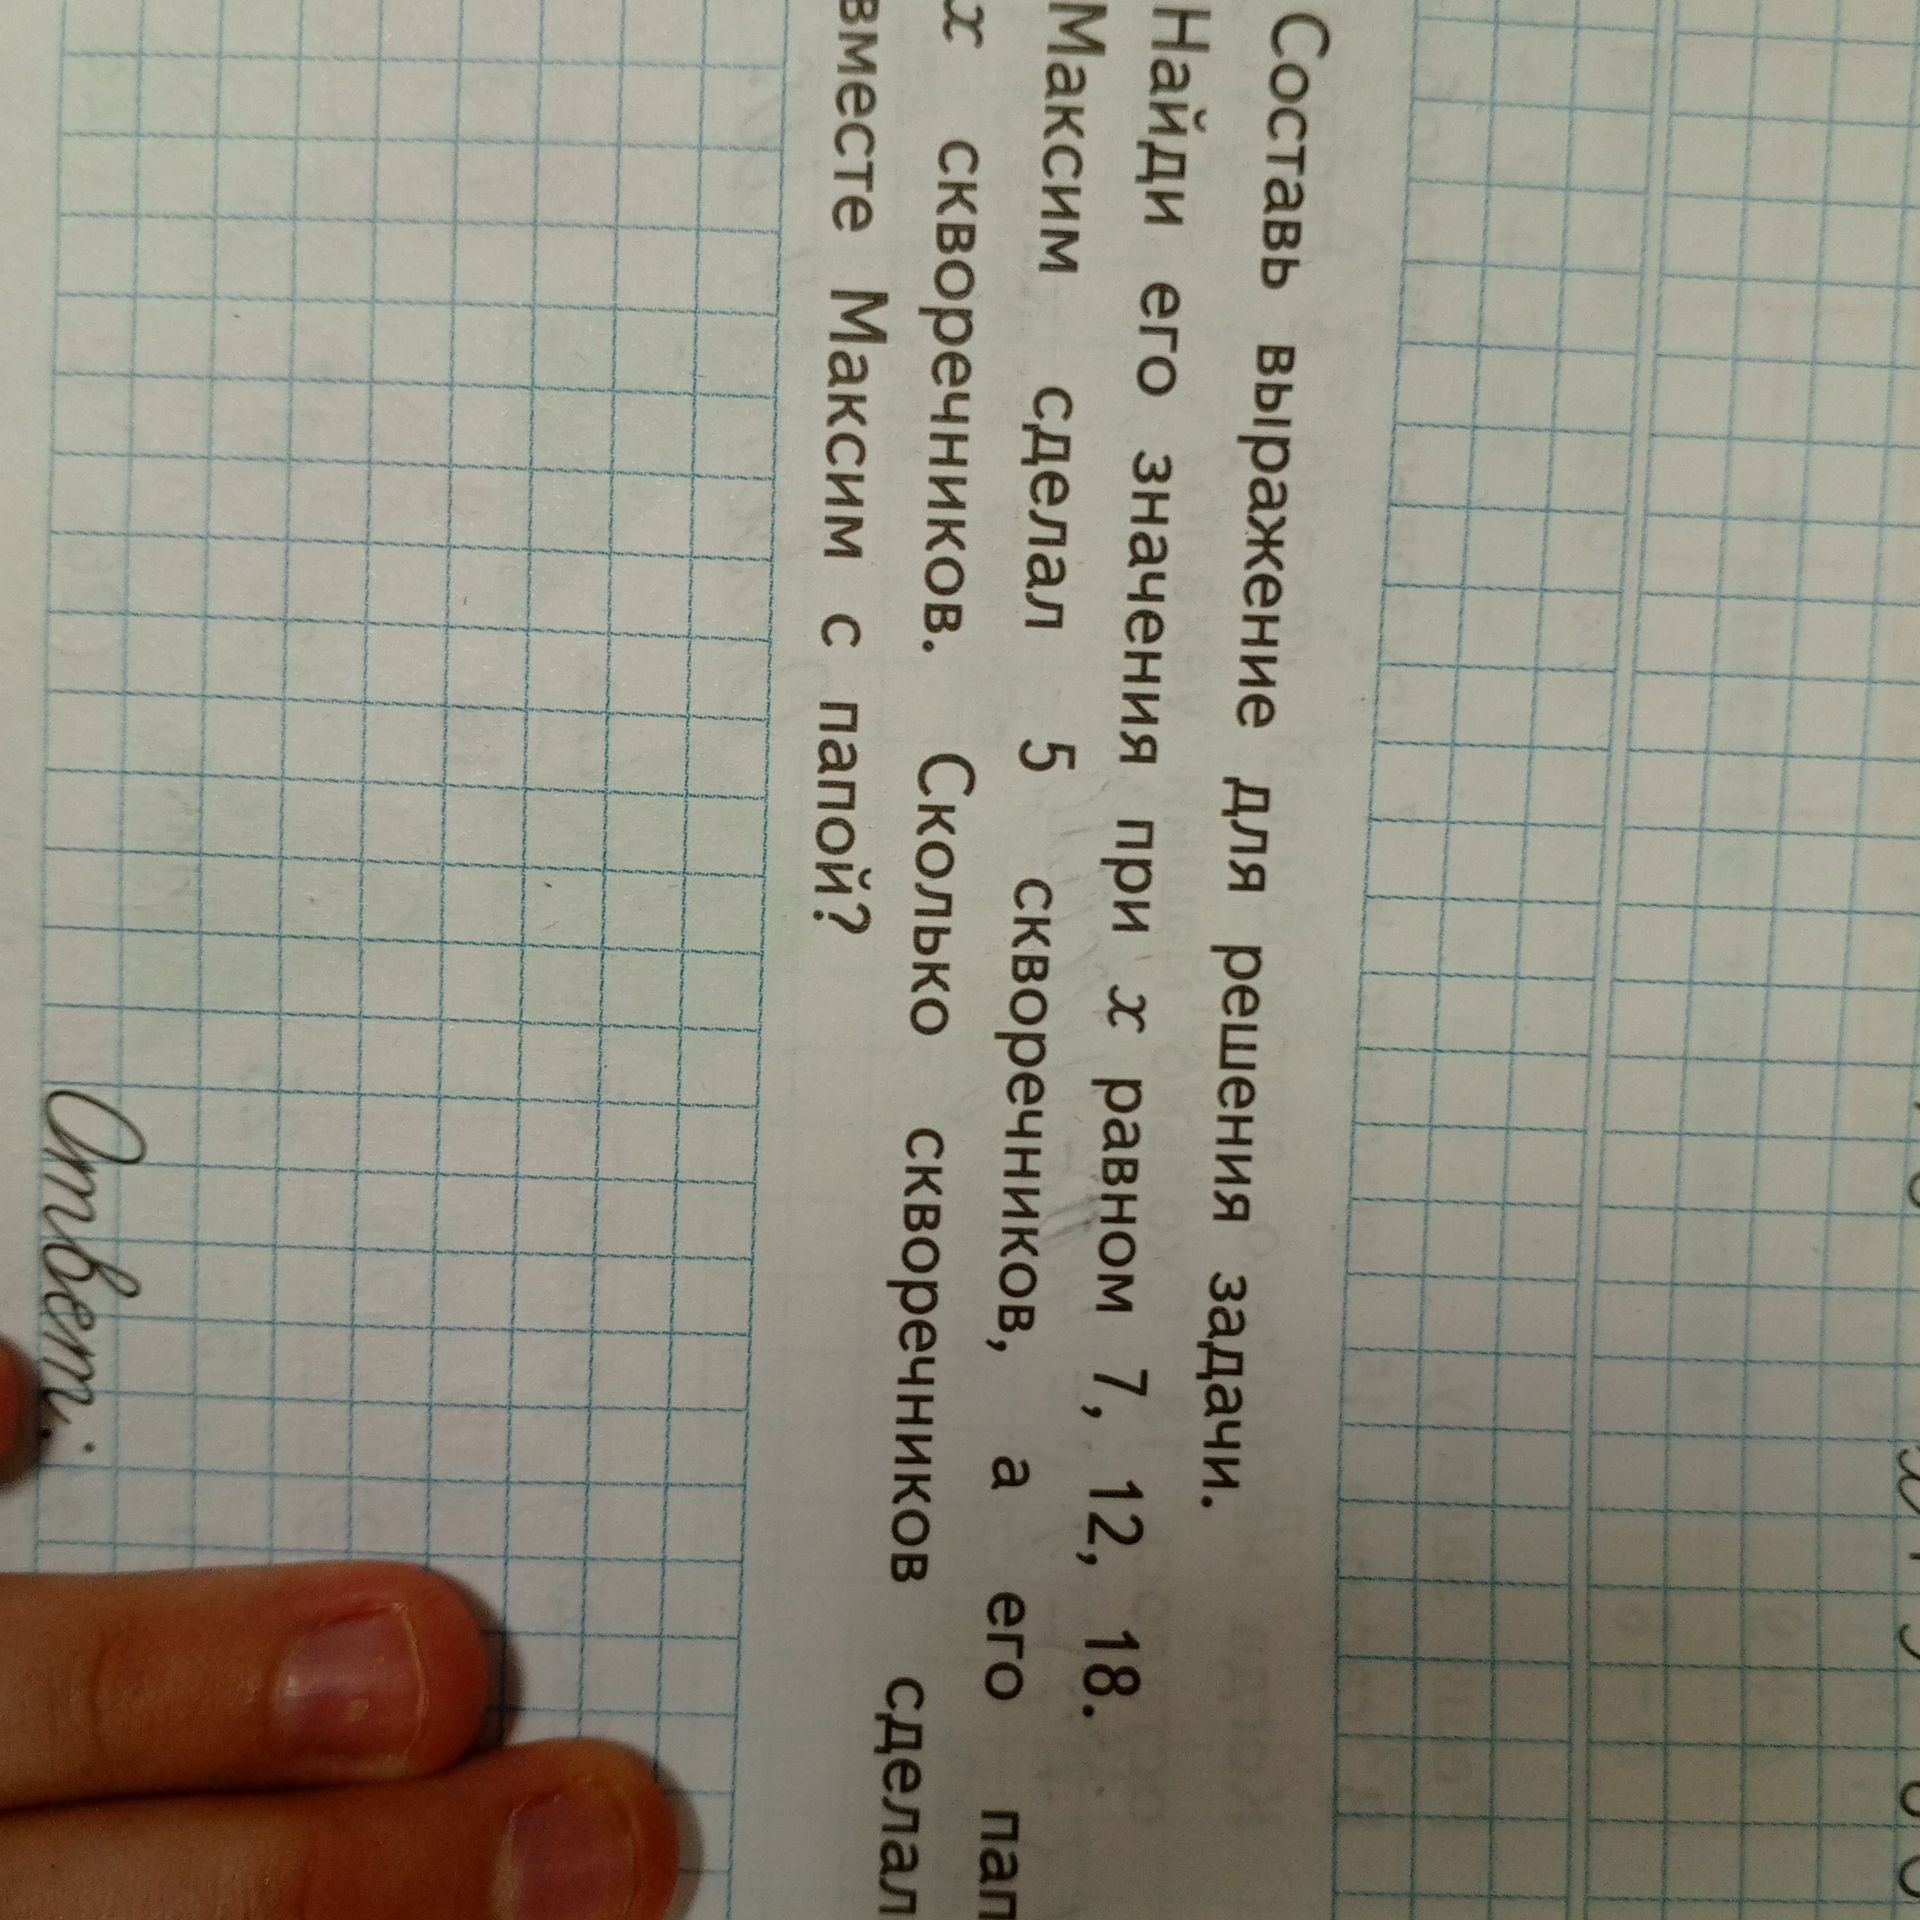 Составь выражение для решения задачи.
Найди его значения при x равном 7, 12, 18.
Максим сделал 5 скворечников, а его
x скворечников. Сколько скворечников
вместе Максим с папой?
Ответ: